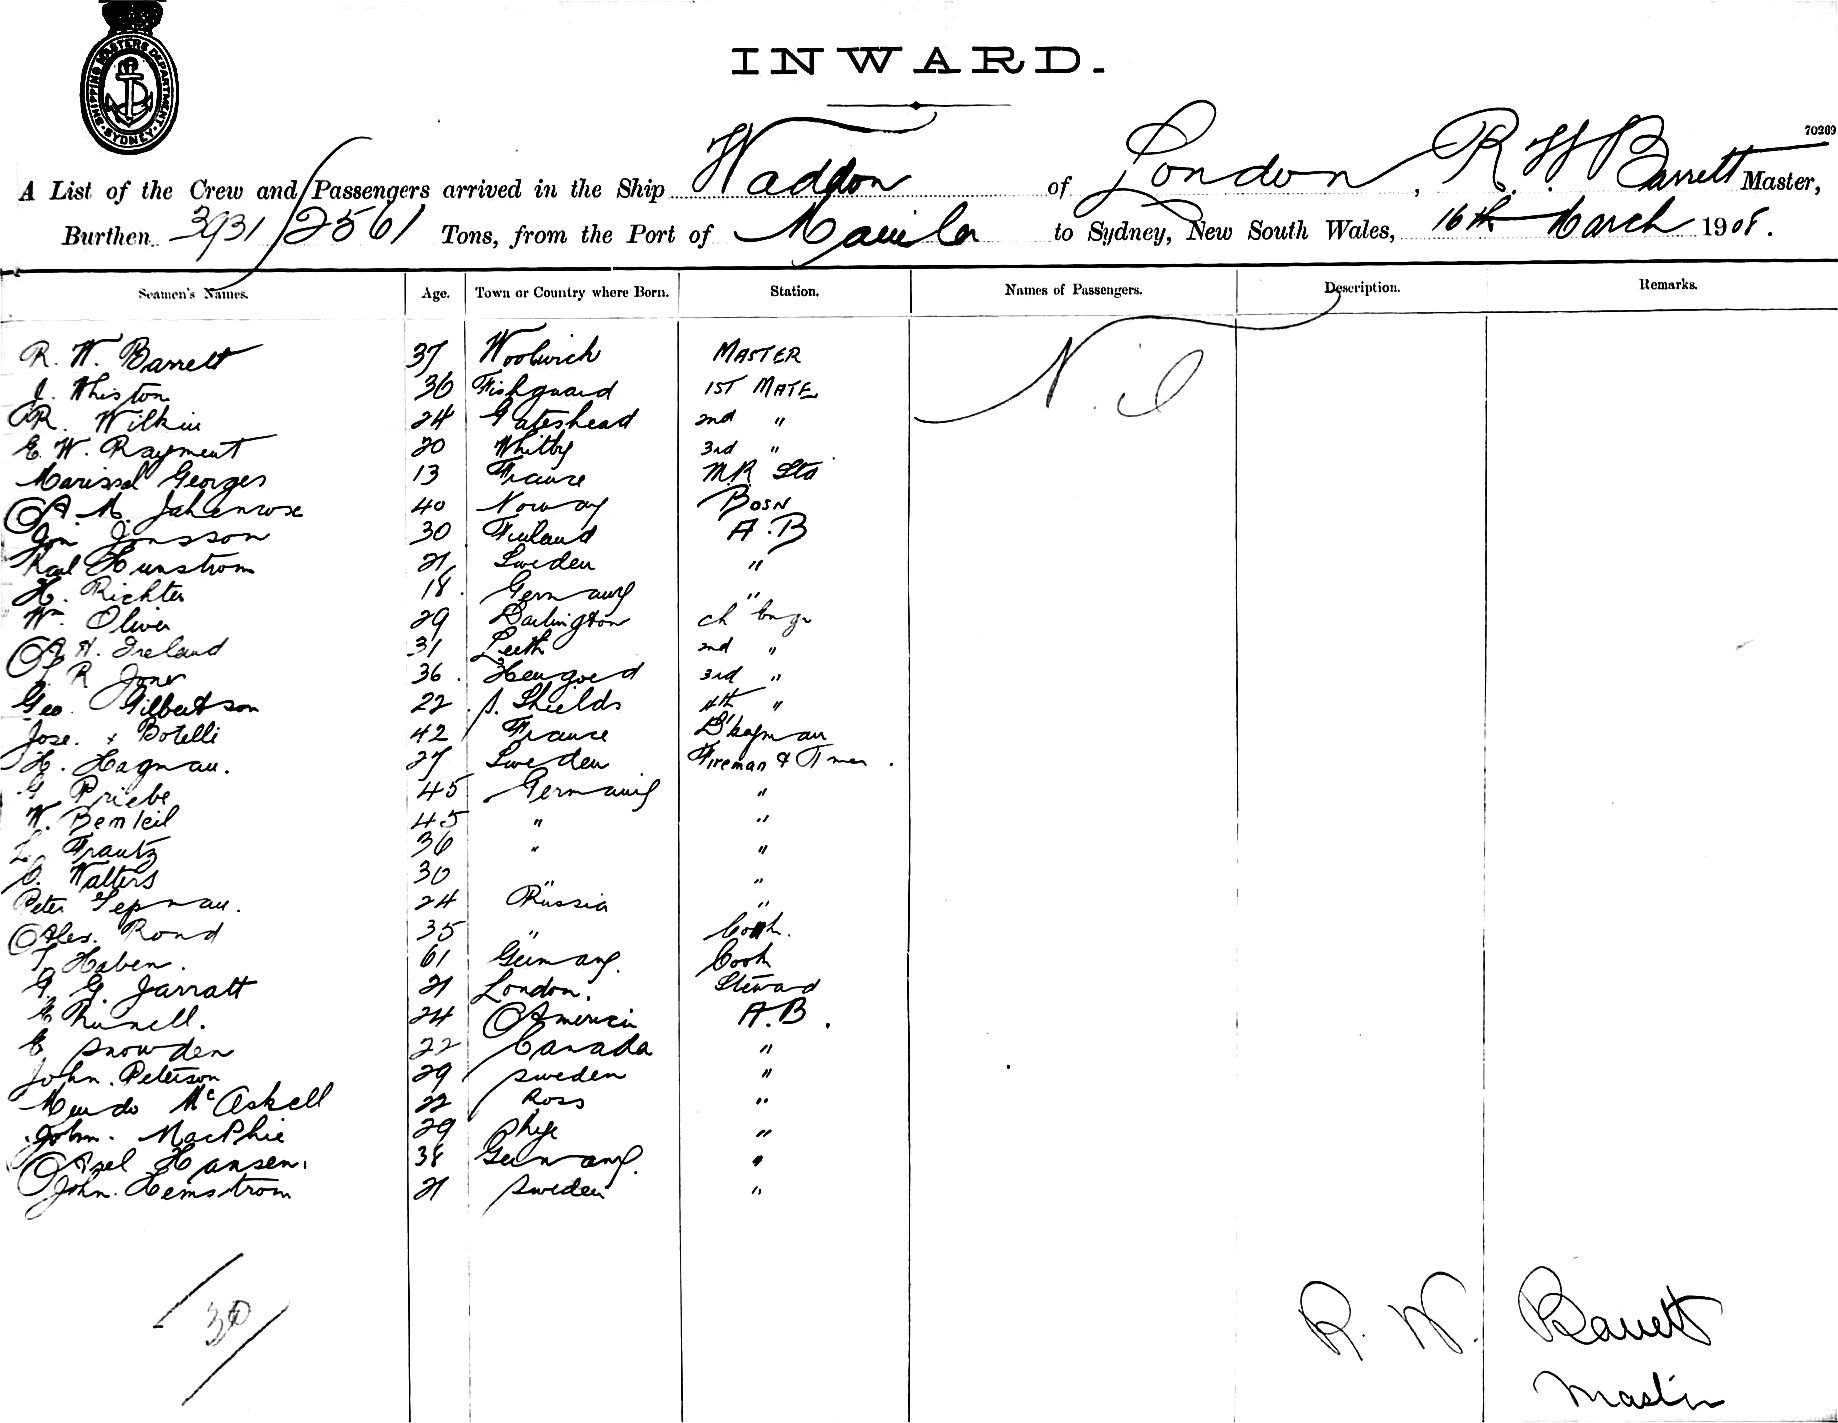 SHIPPING MASTERS DEPARTMENT. SYDNEY.
INWARD.
70209
A List of the Crew and Passengers arrived in the Ship Waddon of London, R. W Barrett Master,
Burthen 3931/2561 Tons, from the Port of Manila to Sydney, New South Wales, 16th March 1908.
Seamen's Names. Age. Town or Country where Born. Station. Names of Passengers. Description. Remarks.
R. W. Barrett 37 Woolwich MASTER Nil
J. Whiston 36 Fishguard 1ST MATE
R. Wilkin 24 Gateshead 2nd "
E. W. Rayment 20 Whitby 3rd "
Georges 13 France
A. M. 40 Norway BOSN
Jon Jonsson 30 Finland A.B
Karl Hunstrom 21 Sweden "
H. Richter 18 Germany "
Wm Oliver 29 Darlington ch Engr
A H. Ireland 31 Leith 2nd "
R Jones 36 Hengoed 3rd "
Geo. Gilbertson 22 S. Shields 4th "
Jose. Botelli 42 France D'kyman
H. Hagman. 27 Sweden Fireman & Tmer.
G Priebe 45 Germany "
W. 45 " "
L. Frantz 36 " "
O. Walters 30 " "
Peter 24 Russia "
Alex. Rond 35 " Cook.
Haben. 61 Germany. Cook
G. G. Jarratt 21 London. Steward
E 24 America A.B.
E. Snowden 22 Canada "
John. Peterson 29 Sweden "
Murdo McAskell 22 Ross "
John. MacPhie 29 Skye "
Axel Hansen. 38 Germany. "
John. Hemstrom 21 Sweden "
30
R. W. Barrett
Master